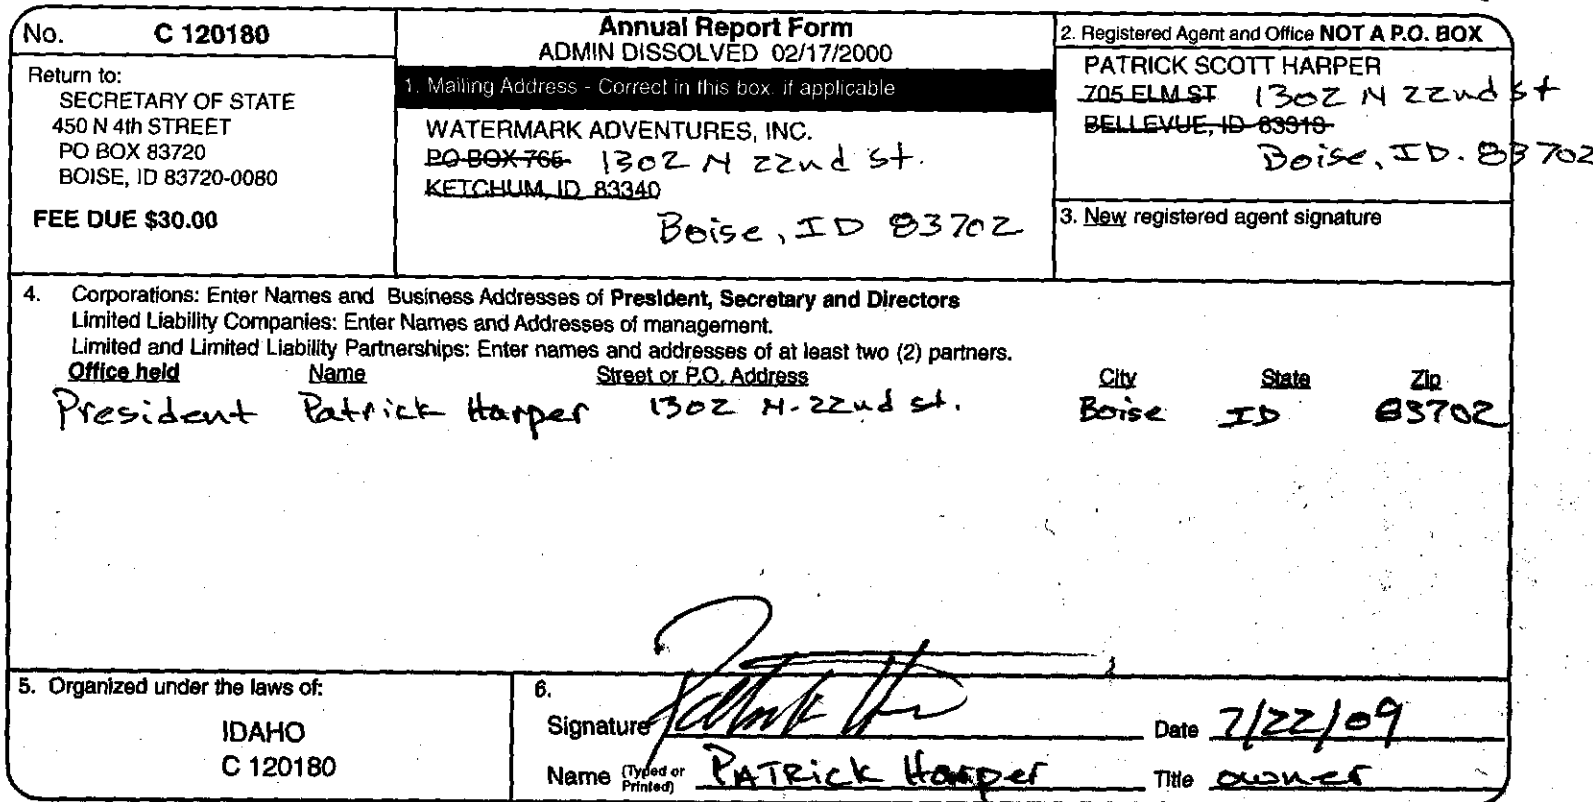 No. C 120180
Return to:
SECRETARY OF STATE
450 N 4th STREET
PO BOX 83720
BOISE, ID 83720-0080
FEE DUE $30.00
Annual Report Form
ADMIN DISSOLVED 02/17/2000
1. Mailing Address - Correct in this box, if applicable
WATERMARK ADVENTURES, INC.
PO BOX 765 1302 N 22nd St.
KETCHUM, ID 83340
Boise, ID 83702
2. Registered Agent and Office NOT A P.O. BOX
PATRICK SCOTT HARPER
705 ELM ST 1302 N 22nd St
BELLEVUE, ID 83313
Boise, ID. 83702
3. New registered agent signature
4. Corporations: Enter Names and Business Addresses of President, Secretary and Directors
Limited Liability Companies: Enter Names and Addresses of management.
Limited and Limited Liability Partnerships: Enter names and addresses of at least two (2) partners.
Office held Name Street or P.O. Address City State Zip
President Patrick Harper 1302 N. 22nd st. Boise ID 83702
5. Organized under the laws of:
IDAHO
C 120180
6.
Signature Date 7/22/09
Name (Typed or Printed) PATRick Harper Title owner